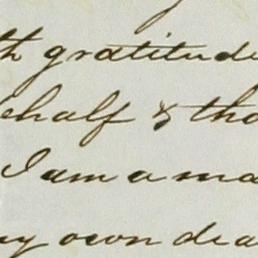 th gratitude
ehalf & tho
I am a ma
y own dea